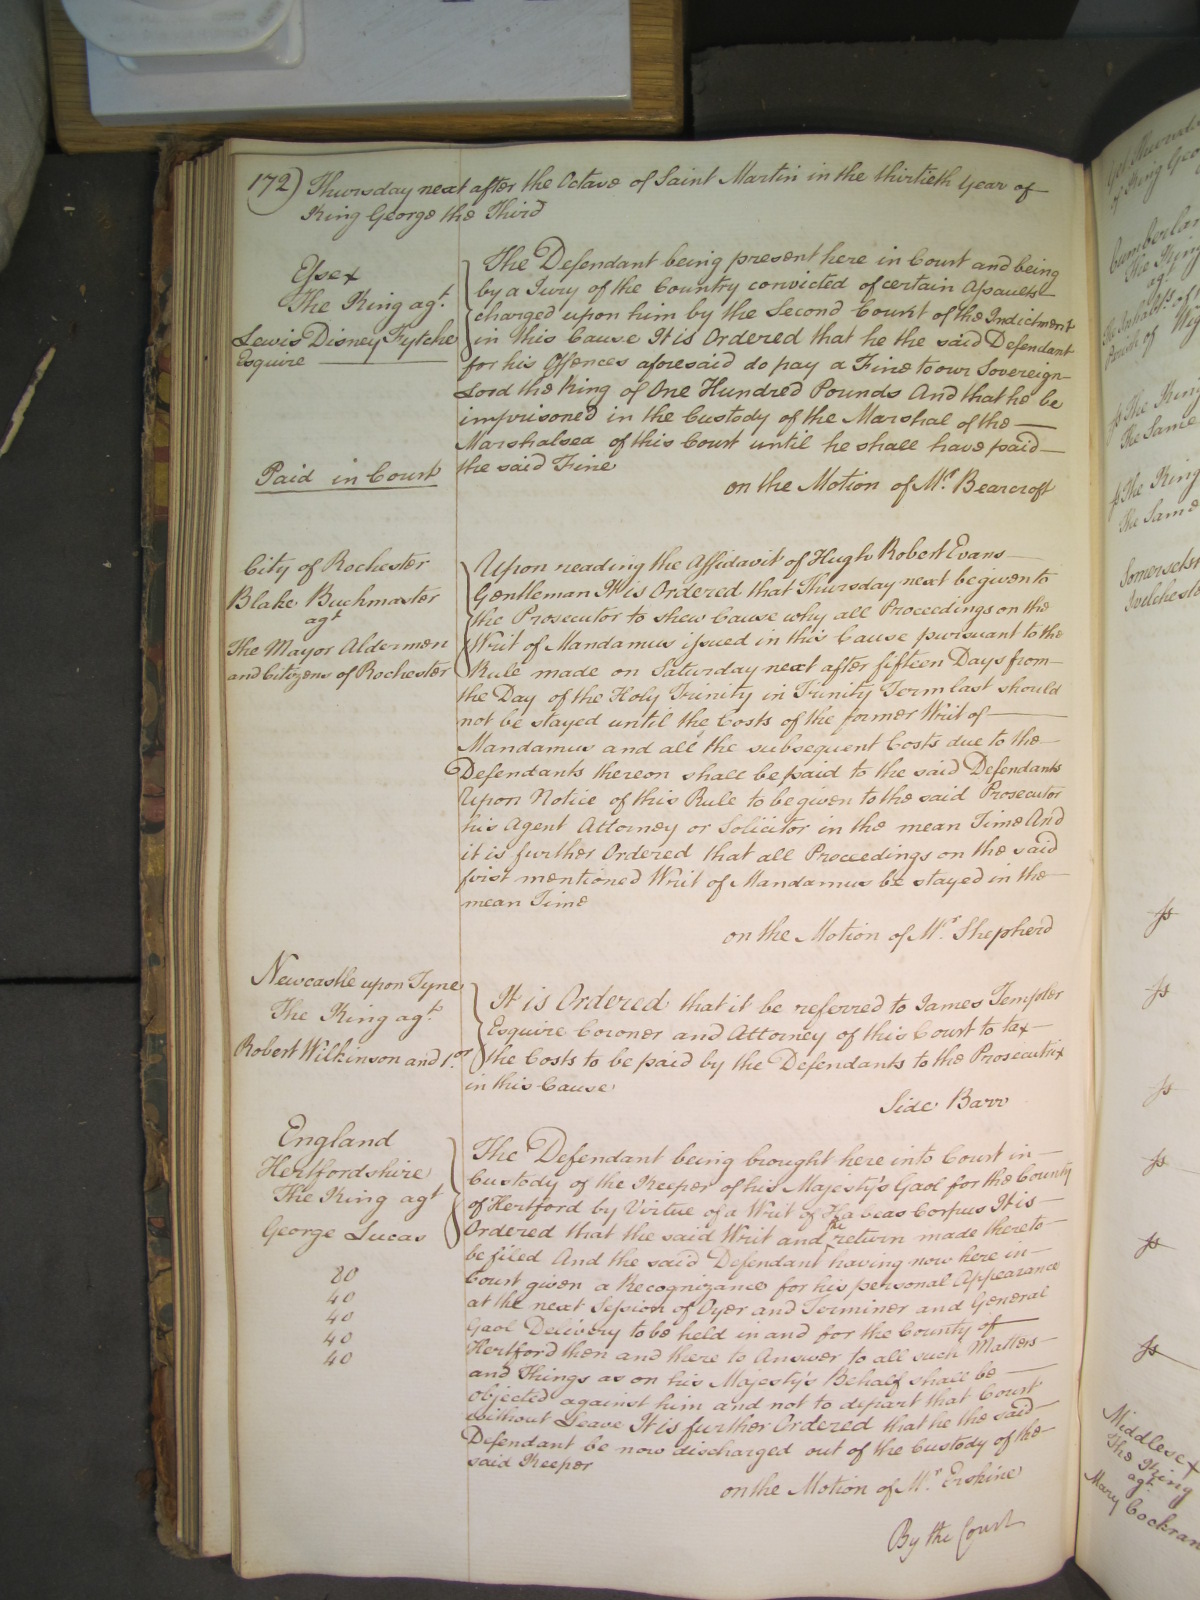 172) Thursday next after the Octave of Saint Martin in the thirtieth Year of
King George the Third
Essex
The King agt.
Lewis Disney Fytche
Esquire
Paid in Court
The Defendant being present here in Court and being
by a Jury of the Country convicted of certain Assaults
charged upon him by the Second Count of the Indictment
in this Cause It is Ordered that he the said Defendant
for his Offences aforesaid do pay a Fine to our Sovereign
Lord the King of One Hundred Pounds And that he be
imprisoned in the Custody of the Marshal of the
Marshalsea of this Court until he shall have paid
the said Fine
on the Motion of Mr. Bearcroft
City of Rochester
Blake Buckmaster
agt
The Mayor Aldermen
and Citizens of Rochester
Upon reading the Affidavit of Hugh Robert Evans
Gentleman It is Ordered that Thursday next be given to
the Prosecutor to shew Cause why all Proceedings on the
Writ of Mandamus issued in this Cause pursuant to the
Rule made on Saturday next after fifteen Days from
the Day of the Holy Trinity in Trinity Term last should
not be stayed until the Costs of the former Writ of
Mandamus and all the subsequent Costs due to the
Defendants thereon shall be paid to the said Defendants
Upon Notice of this Rule to be given to the said Prosecutor
his Agent Attorney or Solicitor in the mean Time And
it is further Ordered that all Proceedings on the said
first mentioned Writ of Mandamus be stayed in the
mean Time
on the Motion of Mr. Shepherd
Newcastle upon Tyne
The King agt.
Robert Wilkinson and 1. or
It is Ordered that it be referred to James Templer
Esquire Coroner and Attorney of this Court to tax
the Costs to be paid by the Defendants to the Prosecutrix
in this Cause
Side Barr
England
Hertfordshire
The King agt
George Lucas
80
40
40
40
40
The Defendant being brought here into Court in
Custody of the Keeper of his Majesty's Gaol for the County
of Hertford by Virtue of a Writ of Habeas Corpus It is
Ordered that the said Writ and the return made thereto
be filed And the said Defendant having now here in
Court given a Recognizance for his personal Appearance
at the next Session of Oyer and Terminer and General
Gaol Delivery to be held in and for the County of
Hertford then and there to Answer to all such Matters
and Things as on his Majesty's Behalf shall be
objected against him and not to depart that Court
without Leave It is further Ordered that he the said
Defendant be now discharged out of the Custody of the
said Keeper
on the Motion of Mr. Erskine
By the Court
The King
The Same
The King
The Same
Middlesex
The King
agt.
Mary Cockran